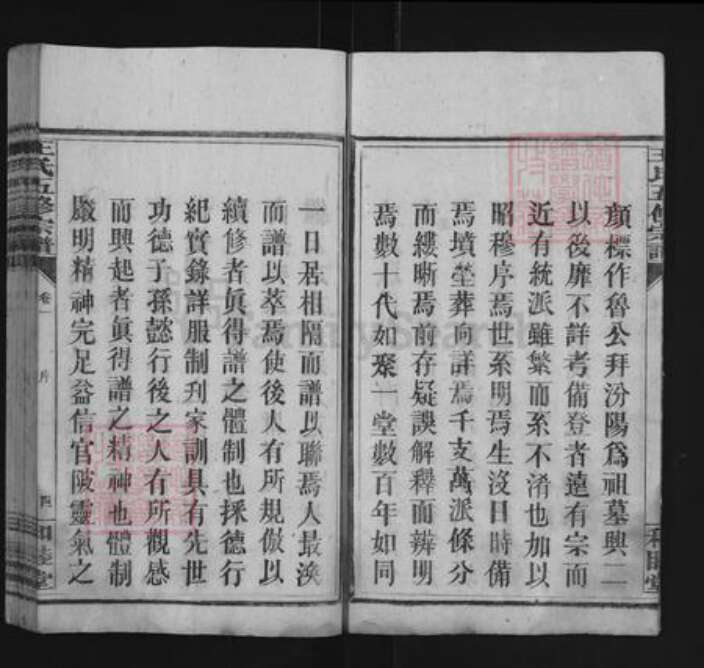 顏標作魯公拜汾陽爲祖墓興二
以後靡不詳考備登者遠有宗而
近有統派雖繁而系不淆也加以
昭穆序焉世系明焉生沒日時備
焉墳塋葬向詳焉千支萬派條分
而縷晰焉前存疑誤解釋而辨明
焉數十代如聚一堂數百年如同
一日居相隔而譜以聯焉人最渙
而譜以萃焉使後人有所規倣以
續修者眞得譜之體制也採德行
紀實錄詳服制刋家訓具有先世
功德子孫懿行後之人有所觀感
而興起者眞得譜之精神也體制
嚴明精神完足益信官陂靈氣之
王氏五修宗譜
卷一
四
和睦堂
王氏五修宗譜
和睦堂